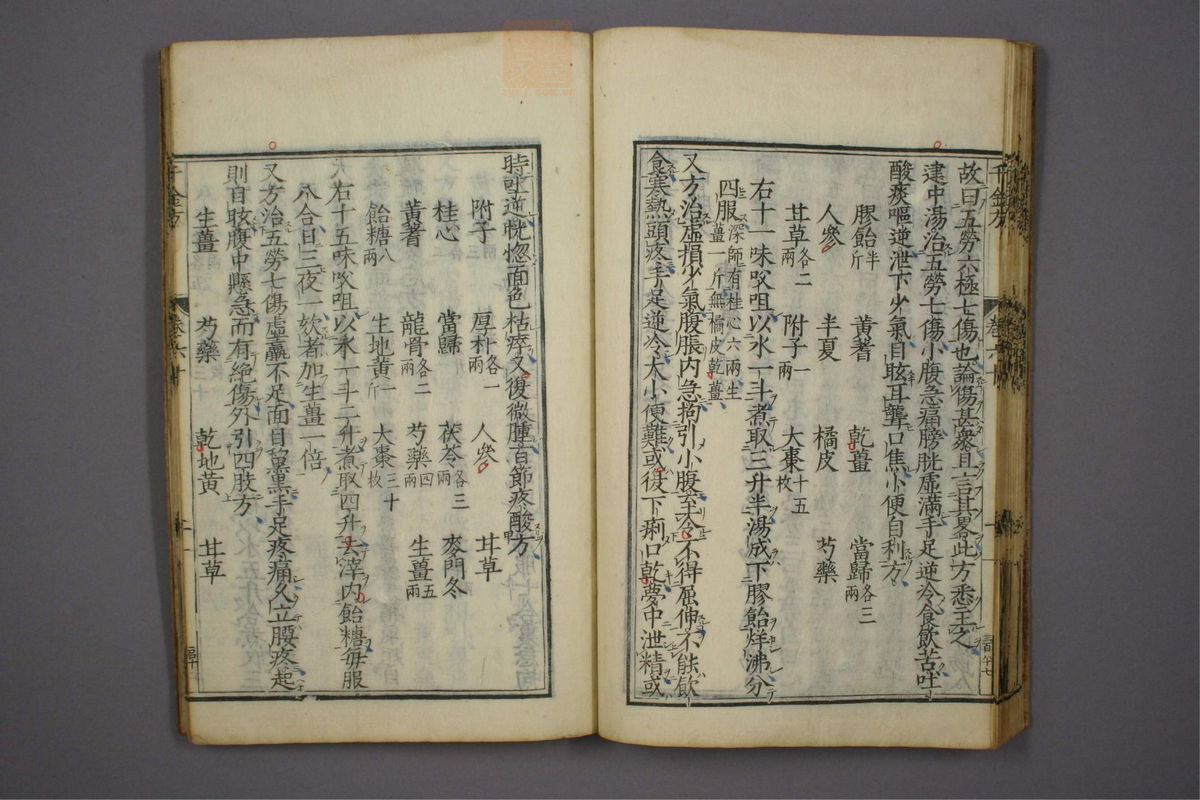 故曰五勞六極七傷也論傷甚衆且言其畧此方悉主之
建中湯治五勞七傷小腹急痛膀胱虛滿手足逆冷食飲苦吐
酸痰嘔逆泄下少氣目眩耳聾口焦小便自利方
膠飴半斤 黃耆 乾薑 當歸各三兩
人參 半夏 橘皮 芍藥
甘草各二兩 附子一兩 大棗十五枚
右十一味㕮咀以水一斗煮取三升半湯成下膠飴烊沸分
四服深師有桂心六兩生薑一斤無橘皮乾薑
又方治虛損少氣腹脹內急拘引小腹至冷不得屈伸不能飲
食寒熱頭疼手足逆冷大小便難或復下痢口乾夢中泄精或
千金方
時吐逆恍惚面色枯瘁又復微腫百節疼酸方
附子 厚朴各一兩 人參 甘草
桂心 當歸 茯苓各三兩 麥門冬
黃耆 龍骨各二兩 芍藥四兩 生薑五兩
飴糖八兩 生地黃一斤 大棗三十枚
右十五味㕮咀以水一斗二升煮取四升去滓內飴糖每服
八合日三夜一欬者加生薑一倍
又方治五勞七傷虛羸不足面目黧黑手足疼痛久立腰疼起
則目眩腹中縣急而有絕傷外引四肢方
生薑 芍藥 乾地黃 甘草
千金方